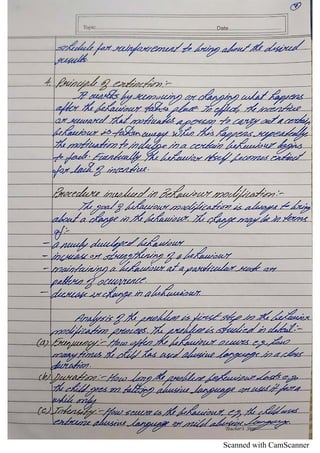 Topic
Date
schedule for reinforcement to bring about the desired
results.
4. Principle of extinction:-
It works by removing or changing what happens
after the behaviour takes place. In effect, the incentive
or reward that motivates a person to carry out a certain
behaviour is taken away. When this happens repeatedly
the motivation to indulge in a certain behaviour begins
to fade. Eventually the behavior itself becomes extinct
for lack of incentive.
Procedure involved in Behaviour modification:-
The goal of behaviour modification is always to bring
about a change in the behaviour. The change may be in terms
of:-
- a newly developed behaviour
- increase or strengthening of a behaviour
- maintaining a behaviour at a particular rate or
pattern of occurrence.
- decrease or change in a behaviour.
Analysis of the problem is first step in the behavior
modification process. The problem is studied in detail:-
(a) Frequency:- How often the behaviour occurs e.g. how
many times the child has used abusive language in a class
duration.
(b) Duration:- How long the problem behaviour lasts e.g.
the child goes on talking abusive language or uses it for a
while only.
(c) Intensity:- How severe is the behaviour, e.g. the child uses
extreme abusive language or mild abusive language.
Teacher's Sign
Scanned with CamScanner